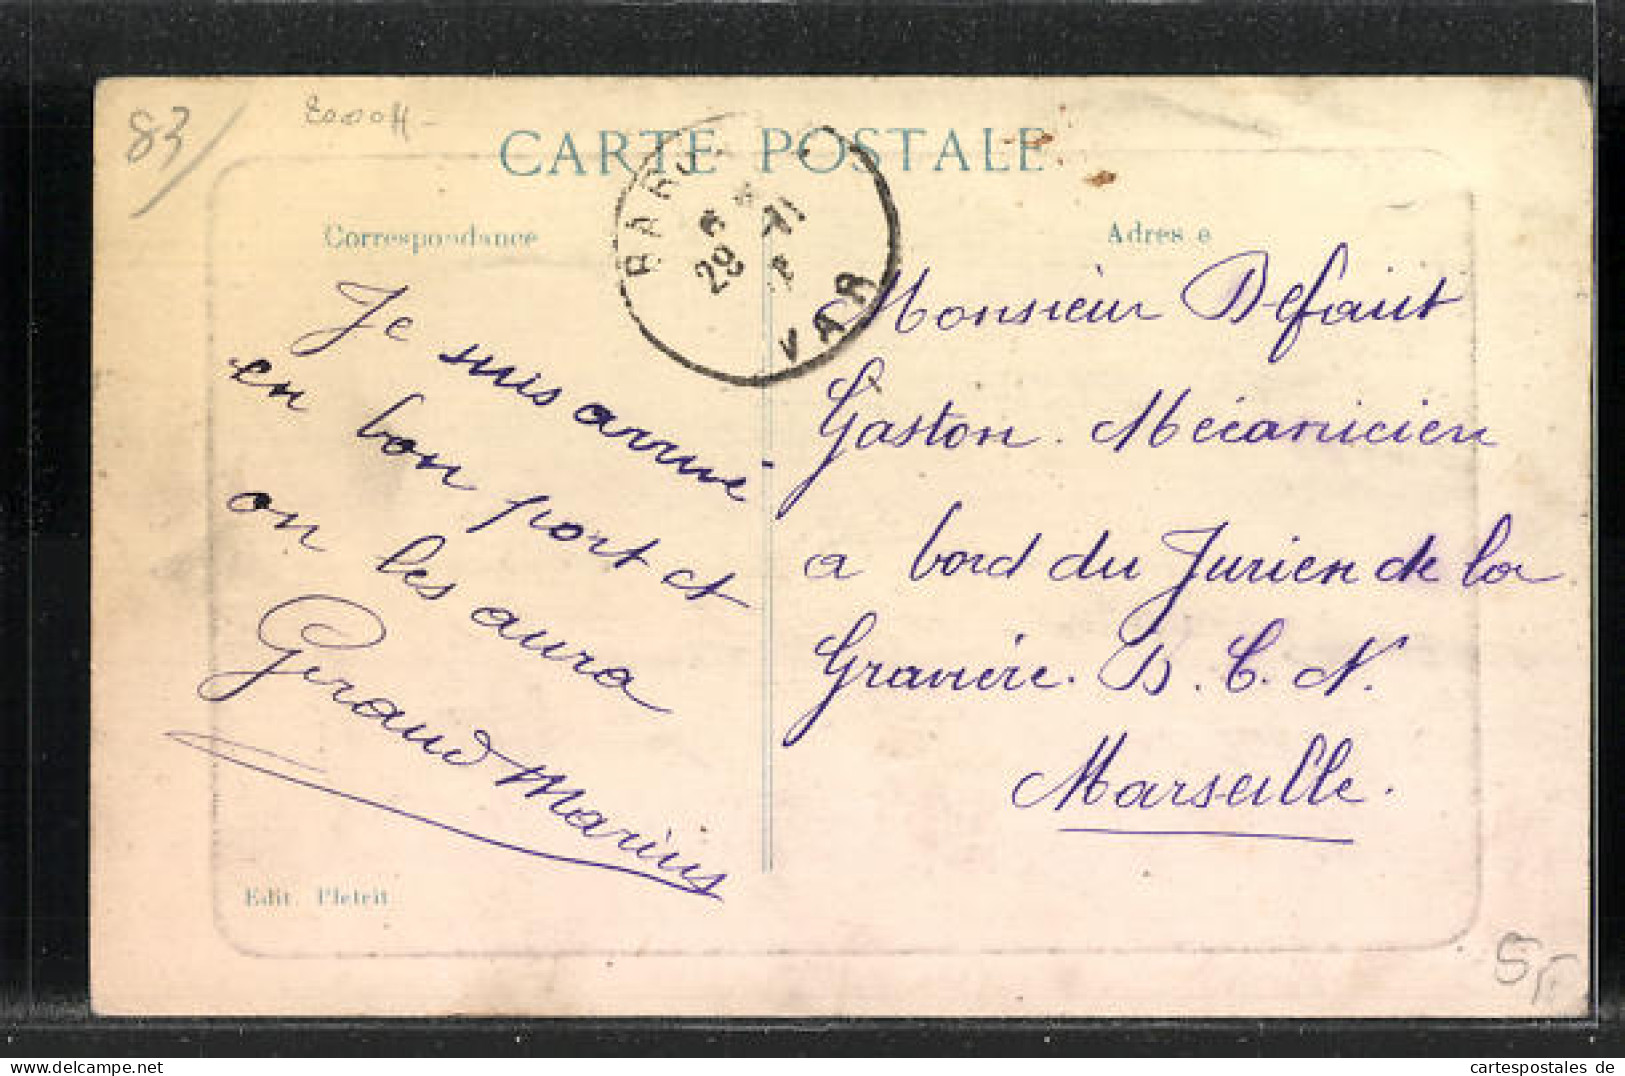 83/
CARTE POSTALE
Correspondance
Adresse
29
VAR
Je suis arrivé
en bon port et
on les aura
Giraud Marius
Monsieur Defaut
Gaston. Mécanicien
a bord du Jurien de la
Gravière. D. C. N.
Marseille.
Edit. Pletrit
cartespostales de